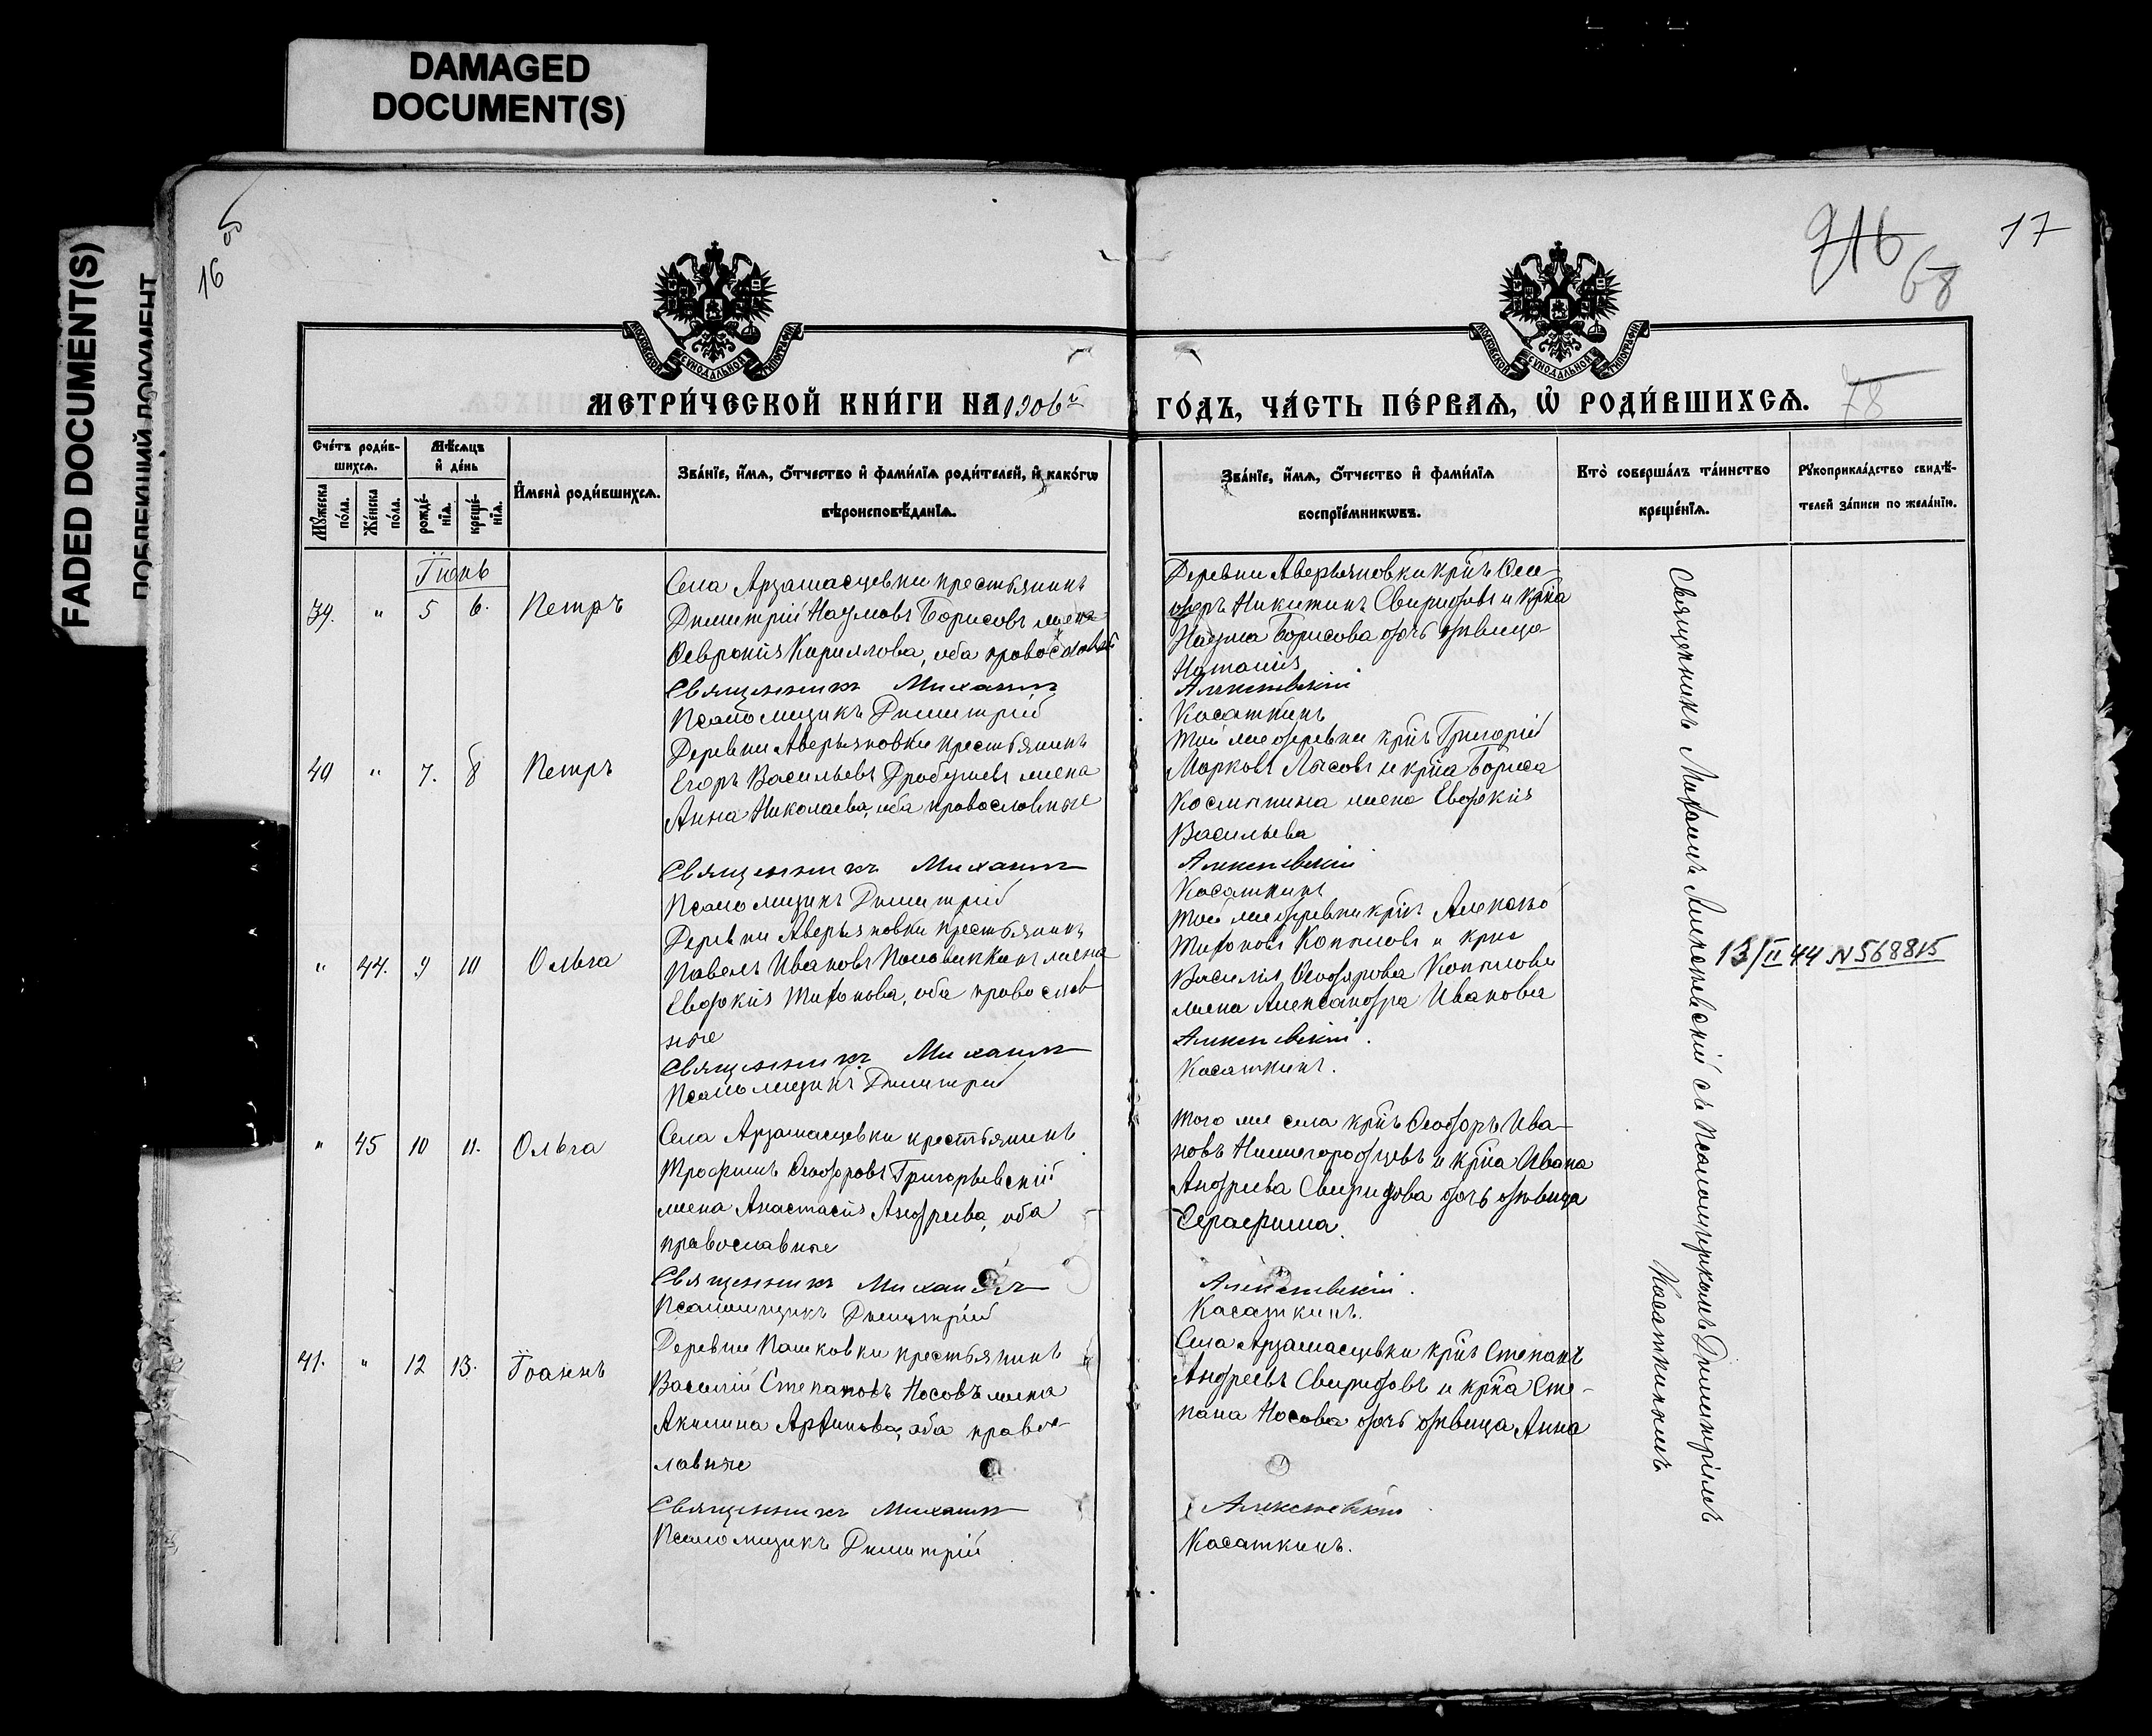 DAMAGED
DOCUMENT(S)
FADED DOCUMENT(S)
16 об
17
916
68
78
МОСКОВСКОЙ СѴНОДАЛЬНОЙ ТИПОГРАФІИ
МОСКОВСКОЙ СѴНОДАЛЬНОЙ ТИПОГРАФІИ
МЕТРИ́ЧЕСКОЙ КНИ́ГИ НА 1906й
ГО́ДЪ, ЧА́СТЬ ПЕ́РВАѦ, Ѡ҆ РОДИ́ВШИХСѦ.
Сче́тъ роди́в-
шихсѧ.
Мѣ́сѧцъ
и҆ де́нь
Му́жеска
по́ла.
Же́нска
по́ла.
рожде́-
нїѧ.
креще́-
нїѧ.
И҆мена̀ роди́вшихсѧ.
Зва́нїе, и҆́мѧ, ѻ҆́тчество и҆ фами́лїѧ роди́телей, и҆ како́гѡ
вѣроисповѣ́данїѧ.
Зва́нїе, и҆́мѧ, ѻ҆́тчество и҆ фами́лїѧ
воспрїе́мникѡвъ.
Кто̀ соверша́лъ та́инство
креще́нїѧ.
Рꙋкоприкла́дство свидѣ́-
телей за́писи по жела́нїю.
Іюнь
39. " 5 6. Петръ
Села Арзамасцевки крестьянинъ
Димитрій Наумовъ Борисовъ жена
Февронія Кириллова, оба православ
Священникъ Михаилъ
Псаломщикъ Димитрій
Деревни Аверьяновки крнъ Ѳео-
доръ Никитинъ Свиридовъ и крна
Наума Борисова дочь дѣвица
Наталія
Алексѣевскій
Касаткинъ
40 " 7. 8 Петръ
Деревни Аверьяновки крестьянинъ
Егоръ Васильевъ Дробушевъ жена
Анна Николаева, оба православные
Священникъ Михаилъ
Псаломщикъ Димитрій
Той же деревни крнъ Григорій
Марковъ Лысовъ и крна Бориса
Космынина жена Евдокія
Васильева
Алексѣевскій
Касаткинъ
" 44. 9 10 Ольга
Деревни Аверьяновки крестьянинъ
Павелъ Ивановъ Половинкинъ жена
Евдокія Тихонова, оба православ
ные
Священникъ Михаилъ
Псаломщикъ Димитрій
Той же деревни крнъ Алексѣй
Тихоновъ Копыловъ и крна
Василія Ѳеодорова Копылова
жена Александра Иванова
Алексѣевскій.
Касаткинъ.
13/II 44 N 568815
" 45 10 11. Ольга
Села Арзамасцевки крестьянинъ
Трофимъ Ѳеодоровъ Григорьевскій
жена Анастасія Андреева, оба
православные
Священникъ Михаилъ
Псаломщикъ Димитрій
Того же села крнъ Ѳеодоръ Ива-
новъ Нижегородцевъ и крна Ивана
Андреева Свиридова дочь дѣвица
Серафима.
Алексѣевскій.
Касаткинъ.
41. " 12 13. Іоаннъ
Деревни Пашковки крестьянинъ
Василій Степановъ Носовъ жена
Акилина Архипова, оба правос-
лавные
Священникъ Михаилъ
Псаломщикъ Димитрій
Села Арзамасцевки крнъ Степанъ
Андреевъ Свиридовъ и крна Сте-
пана Носова дочь дѣвица Анна
Алексѣевскій
Касаткинъ.
Священникъ Михаилъ Алексѣевскій съ Псаломщикомъ Димитріемъ
Касаткинымъ